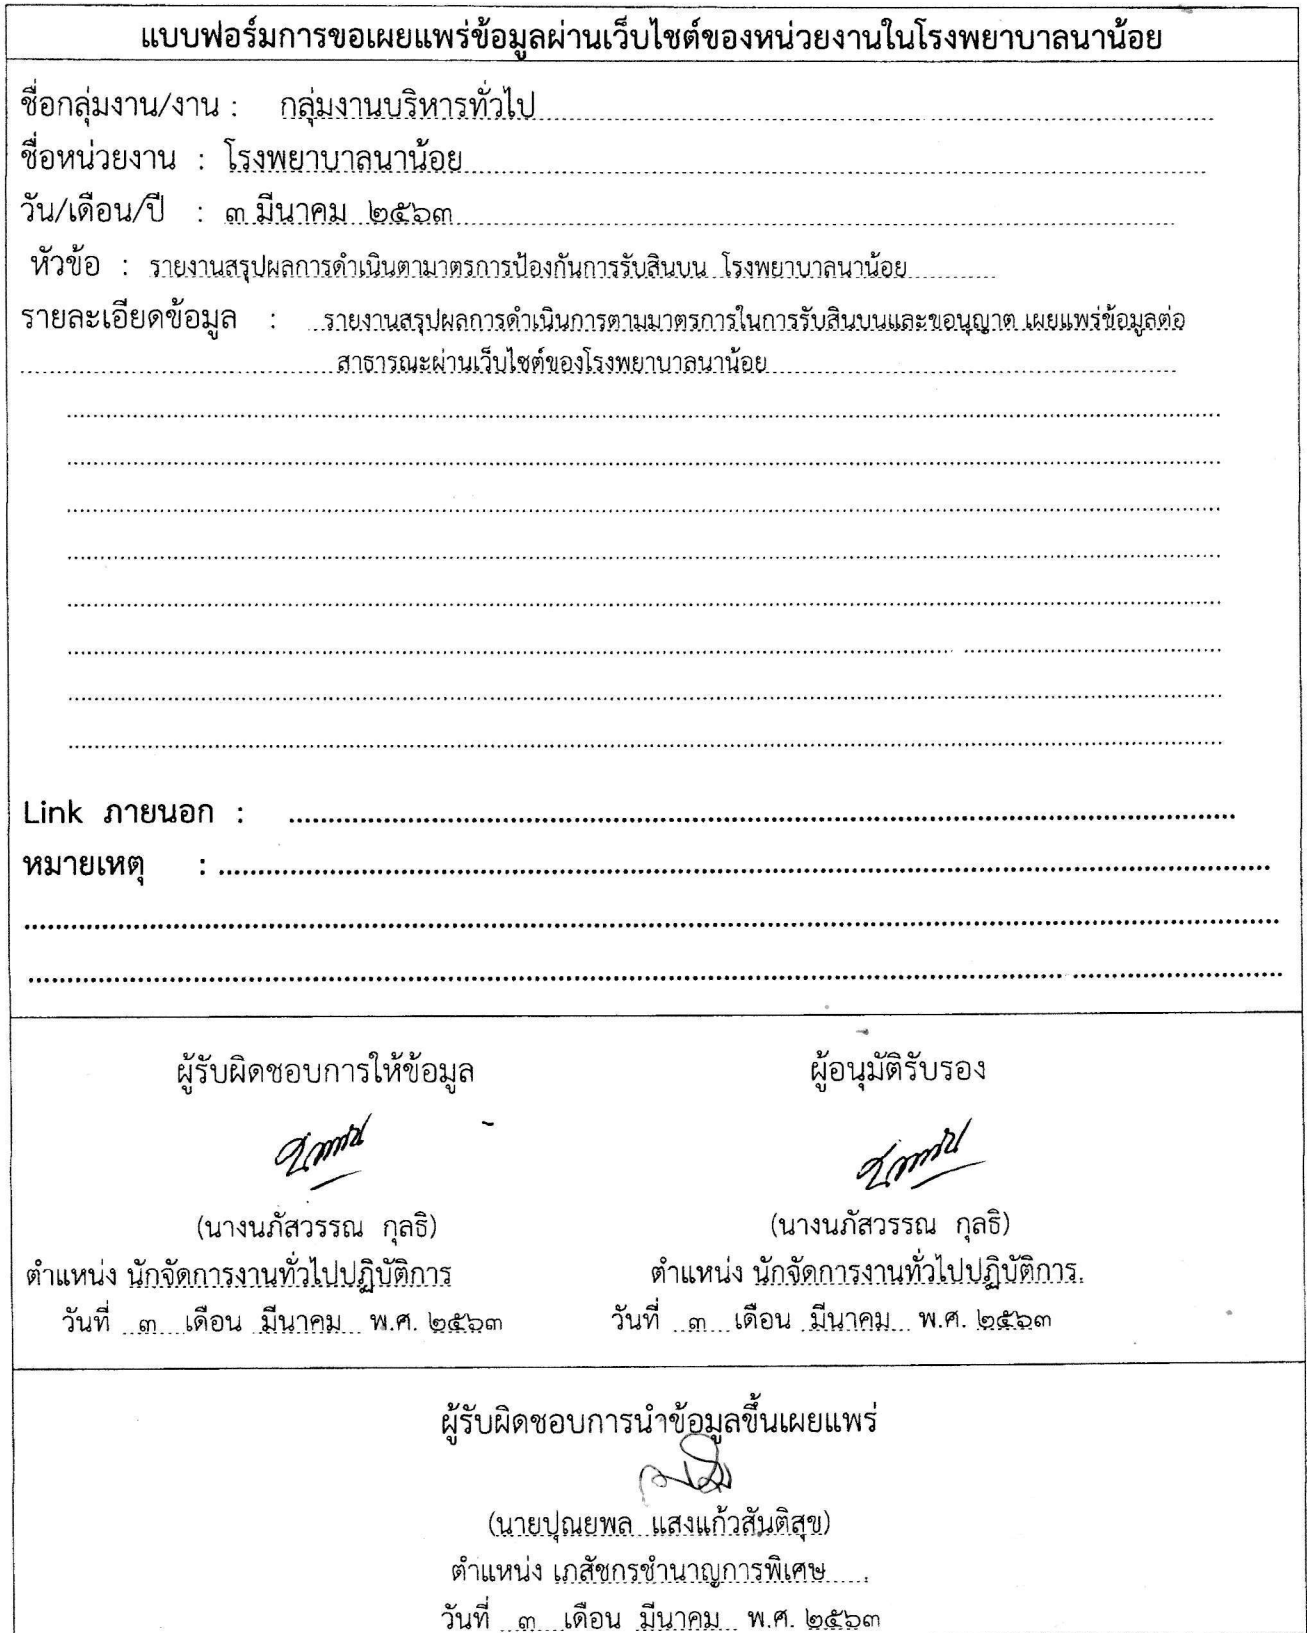 แบบฟอร์มการขอเผยแพร่ข้อมูลผ่านเว็บไซต์ของหน่วยงานในโรงพยาบาลนาน้อย
ชื่อกลุ่มงาน/งาน : กลุ่มงานบริหารทั่วไป
ชื่อหน่วยงาน : โรงพยาบาลนาน้อย
วัน/เดือน/ปี : ๓ มีนาคม ๒๕๖๓
หัวข้อ : รายงานสรุปผลการดำเนินตามาตรการป้องกันการรับสินบน โรงพยาบาลนาน้อย
รายละเอียดข้อมูล : รายงานสรุปผลการดำเนินการตามมาตรการในการรับสินบนและขอนุญาต เผยแพร่ข้อมูลต่อ
สาธารณะผ่านเว็บไซต์ของโรงพยาบาลนาน้อย
Link ภายนอก :
หมายเหตุ :
ผู้รับผิดชอบการให้ข้อมูล ผู้อนุมัติรับรอง
(นางนภัสวรรณ กุลธิ) (นางนภัสวรรณ กุลธิ)
ตำแหน่ง นักจัดการงานทั่วไปปฏิบัติการ ตำแหน่ง นักจัดการงานทั่วไปปฏิบัติการ.
วันที่ ๓ เดือน มีนาคม พ.ศ. ๒๕๖๓ วันที่ ๓ เดือน มีนาคม พ.ศ. ๒๕๖๓
ผู้รับผิดชอบการนำข้อมูลขึ้นเผยแพร่
(นายปุณยพล แสงแก้วสันติสุข)
ตำแหน่ง เภสัชกรชำนาญการพิเศษ
วันที่ ๓ เดือน มีนาคม พ.ศ. ๒๕๖๓